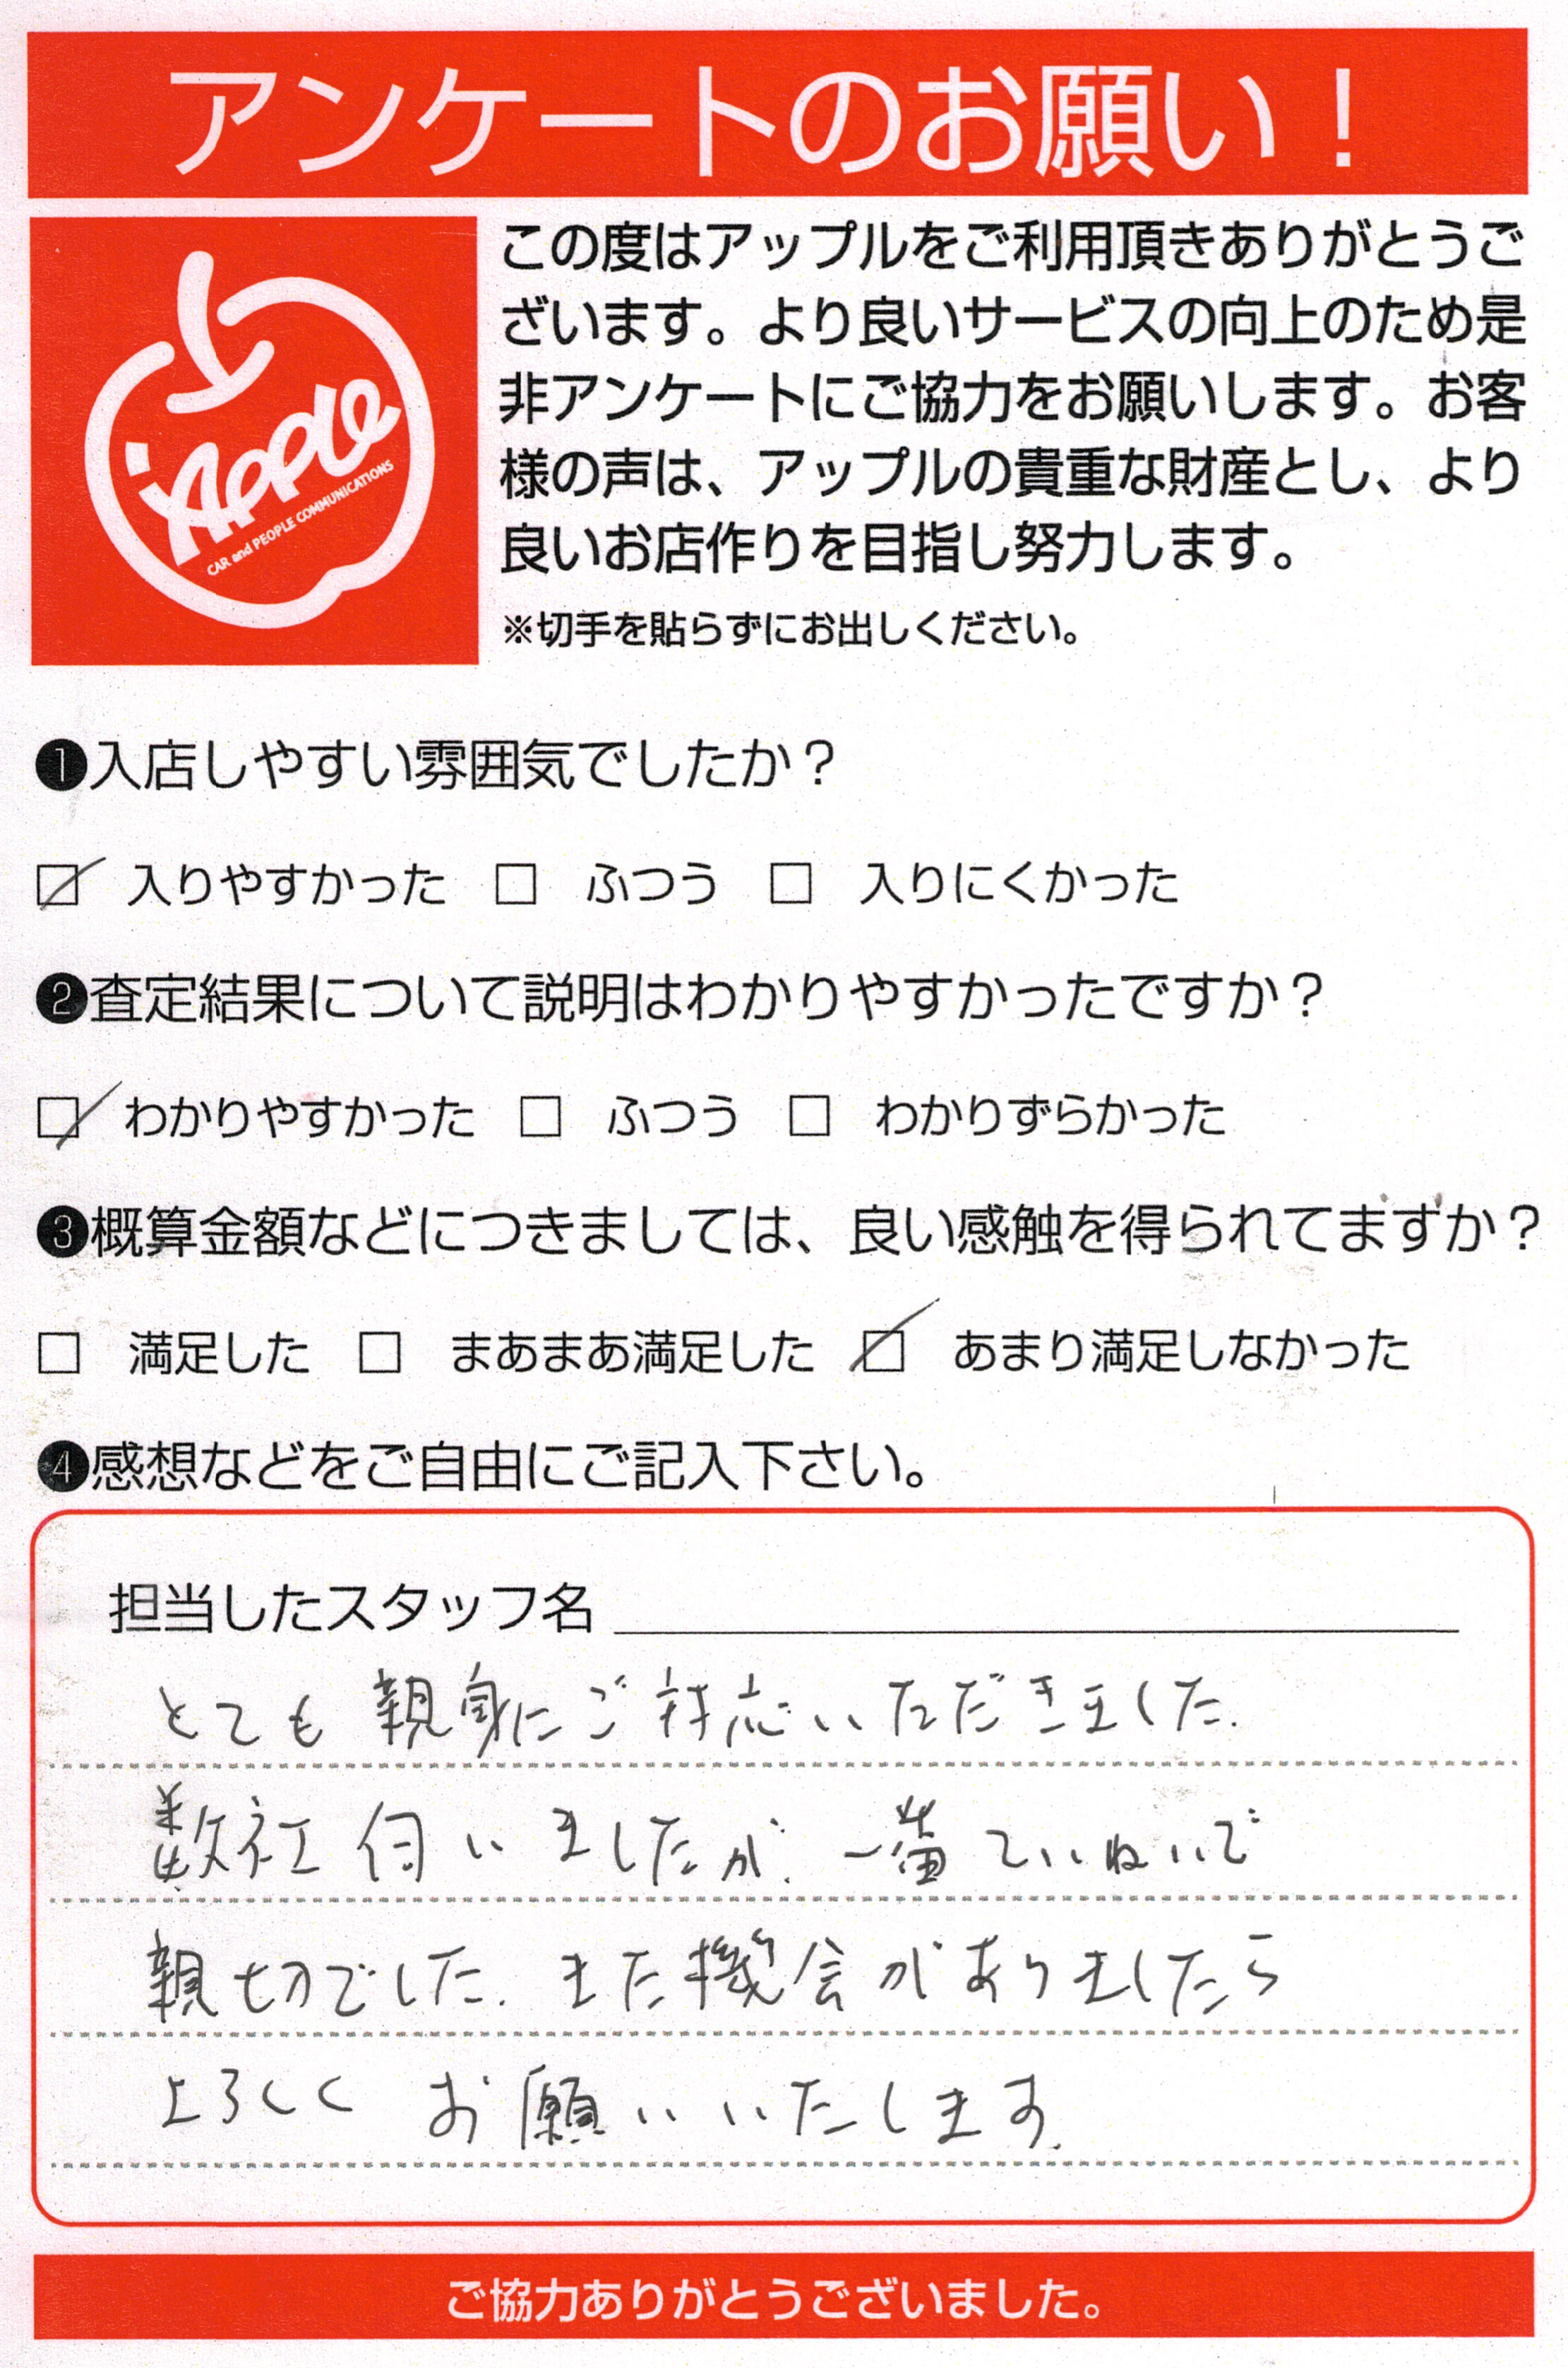 アンケートのお願い！
Apple
CAR and PEOPLE COMMUNICATIONS
この度はアップルをご利用頂きありがとうご
ざいます。より良いサービスの向上のため是
非アンケートにご協力をお願いします。お客
様の声は、アップルの貴重な財産とし、より
良いお店作りを目指し努力します。
※切手を貼らずにお出しください。
❶入店しやすい雰囲気でしたか？
☑ 入りやすかった □ ふつう □ 入りにくかった
❷査定結果について説明はわかりやすかったですか？
☑ わかりやすかった □ ふつう □ わかりずらかった
❸概算金額などにつきましては、良い感触を得られてますか？
□ 満足した □ まあまあ満足した ☑ あまり満足しなかった
❹感想などをご自由にご記入下さい。
担当したスタッフ名
とても親身にご対応いただきました.
数社伺いましたが、一番ていねいで
親切でした. また機会がありましたら
よろしく お願いいたします.
ご協力ありがとうございました。